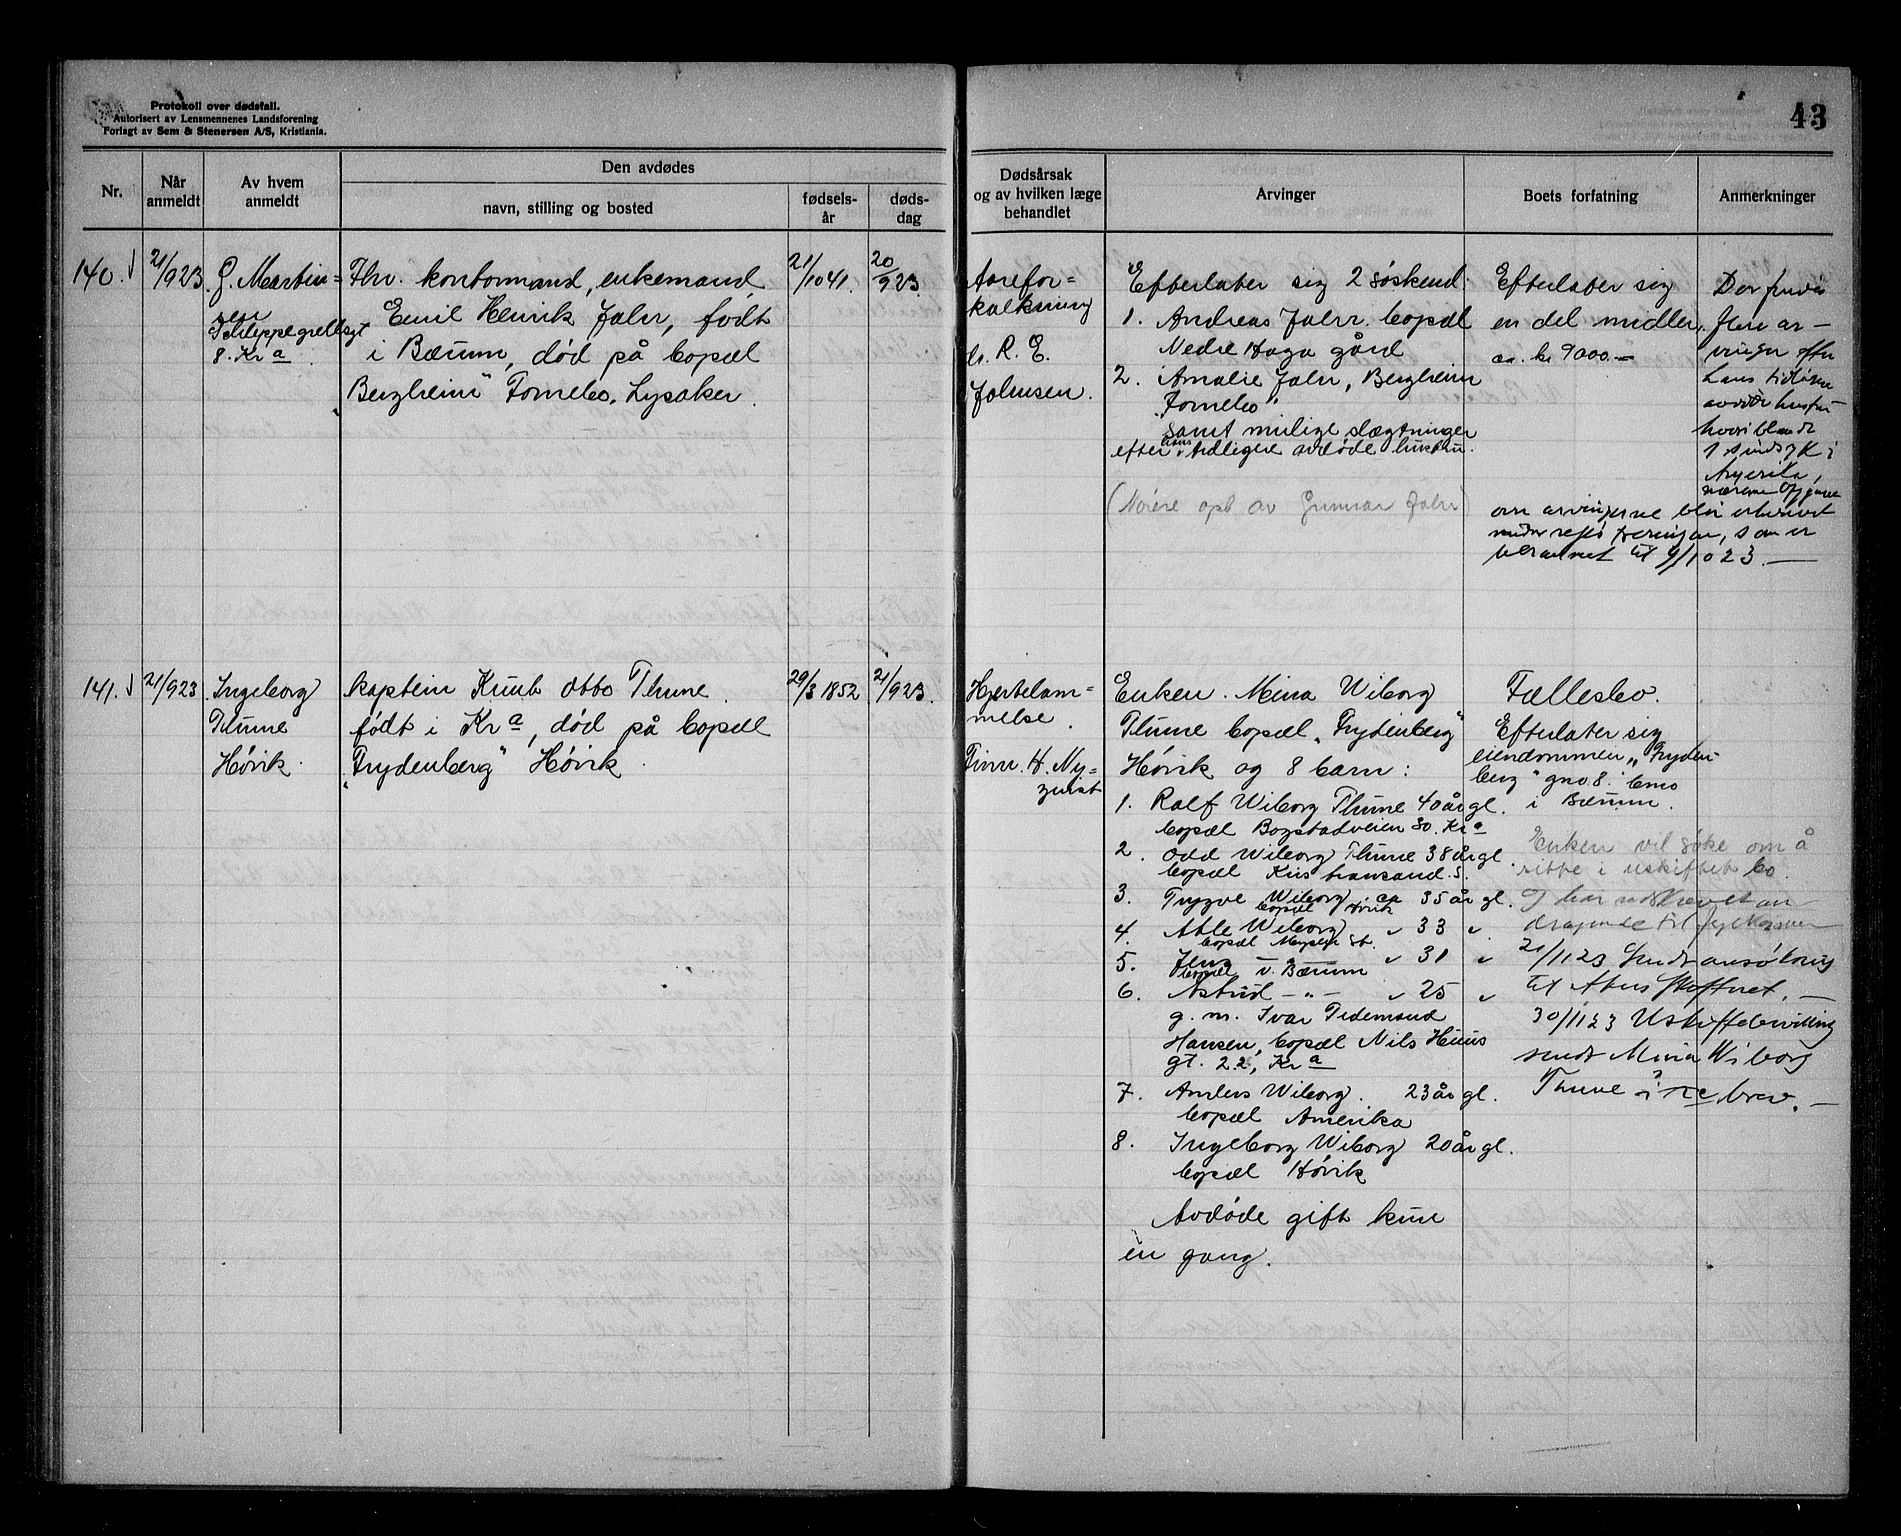 Protokoll over dødsfall.
Autorisert av Lensmennenes Landsforening
Forlagt av Sem & Stenersen A/S, Kristiania.
43
Nr.
Når anmeldt
Av hvem anmeldt
Den avdødes
navn, stilling og bosted
fødsels-år
døds-dag
Dødsårsak og av hvilken læge behandlet
Arvinger
Boets forfatning
Anmerkninger
140.
21/923.
G. Martin=
sen
Schleppegrellsgt
8. Kra
Fhv. kontormand, enkemand
Emil Henrik Jahr, født
i Bærum, død på bopæl
"Bergheim" Fornebo, Lysaker.
21/1041.
20/923.
Aarefor=
kalkning
dr. R. E.
Johnsen.
Efterlater sig 2 søskend.
1. Andreas Jahr. bopæl
Nedre Haga gård
2. Amalie Jahr, Bergheim
Fornebo"
samt mulige slægtninger
efter hans tidligere avdøde hustru.
(Nøiere opl. av Gunnar Jahr)
Efterlater sig
en del midler,
ca. kr 9000.—
Der findes
flere ar-
vinger efter
hans tidligere
avdøde hustru
hvoriblandt
1 sindssyk i
Amerika,
om arvingerne blir
under registreringen, som er
berammet til 9/1023.—
141.
21/923
Ingeborg
Thune
Høvik.
kaptein Knut Otto Thune.
født i Kra, død på bopæl
"Frydenberg" Høvik.
29/3 1852
21/923.
Hjertelam=
melse.
Finn. H. Ny=
quist
Enken. Mina Wiborg
Thune bopæl "Frydenberg"
Høvik og 8 barn:
1. Ralf Wiborg Thune 40 år gl.
bopæl Bogstadveien 30. Kra
2. Odd Wiborg Thune 38 år gl.
bopæl Kristiansand. S.
3. Trygve Wiborg ca 35 år gl.
bopæl Høvik
4. Atle Wiborg " 33 "
bopæl Mysen st.
5. Jens — " — " 31 "
bopæl v. Bærum
6. Astrid — " — " 25 "
g. m. Ivar Tidemand
Hansen, bopæl Nils Huus
gt. 22, Kra
7. Anders Wiborg. 23 år gl.
bopæl Amerika
8. Ingeborg Wiborg 20 år gl.
bopæl Høvik
Avdøde gift kun
én gang.
Fællesbo.
Efterlater sig
eiendommen "Fryden-
berg" gno 8. bno
i Bærum.
Enken vil søke om å
sitte i uskiftet bo.
21/1123 Sendt ansøkning
til Akers Skifteret.—
30/1123 Uskiftebevilling
sendt Mina Wiborg
Thune i rc brev.—